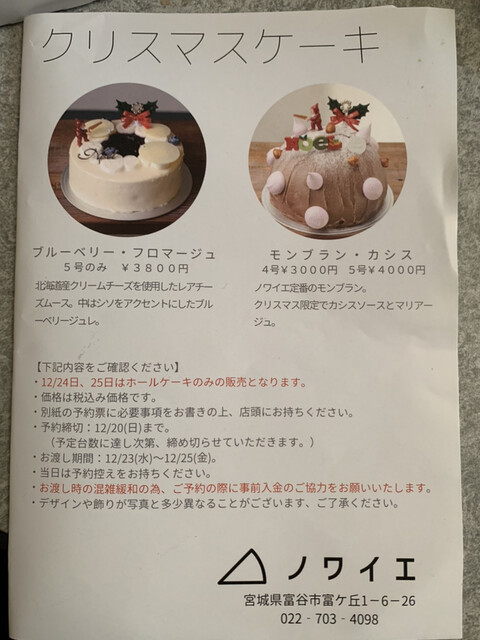 クリスマスケーキ
ブルーベリー・フロマージュ
5号のみ ￥3800円
北海道産クリームチーズを使用したレアチー
ズムース。中はシソをアクセントにしたブル
ーベリージュレ。
NOEL
モンブラン・カシス
4号￥3000円 5号￥4000円
ノワイエ定番のモンブラン。
クリスマス限定でカシスソースとマリアー
ジュ。
【下記内容をご確認ください】
・12/24日、25日はホールケーキのみの販売となります。
・価格は税込み価格です。
・別紙の予約票に必要事項をお書きの上、店頭にお持ちください。
・予約締切：12/20(日)まで。
（予定台数に達し次第、締め切らせていただきます。）
・お渡し期間：12/23(水)～12/25(金)。
・当日は予約控えをお持ちください。
・お渡し時の混雑緩和の為、ご予約の際に事前入金のご協力をお願いいたします。
・デザインや飾りが写真と多少異なることがございます、ご了承ください。
ノワイエ
宮城県富谷市富ケ丘1－6－26
022‐703‐4098